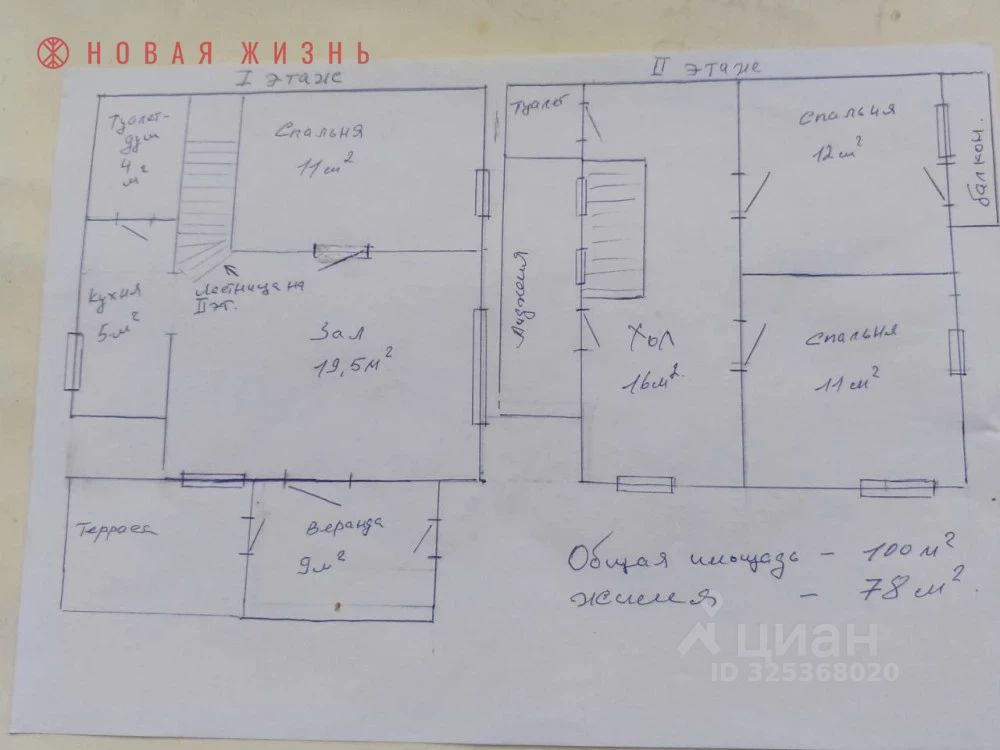 НОВАЯ ЖИЗНЬ
I этаж
II этаж
Туалет-
душ
4 м²
Спальня
11 м²
Кухня
5 м²
Лестница на
II эт.
Зал
19,5 м²
Терраса
Веранда
9 м²
Туалет
Лоджия
Хол
16 м².
Спальня
12 м²
балкон.
Спальня
11 м²
Общая площадь – 100 м²
жилая – 78 м².
циан
ID 325368020